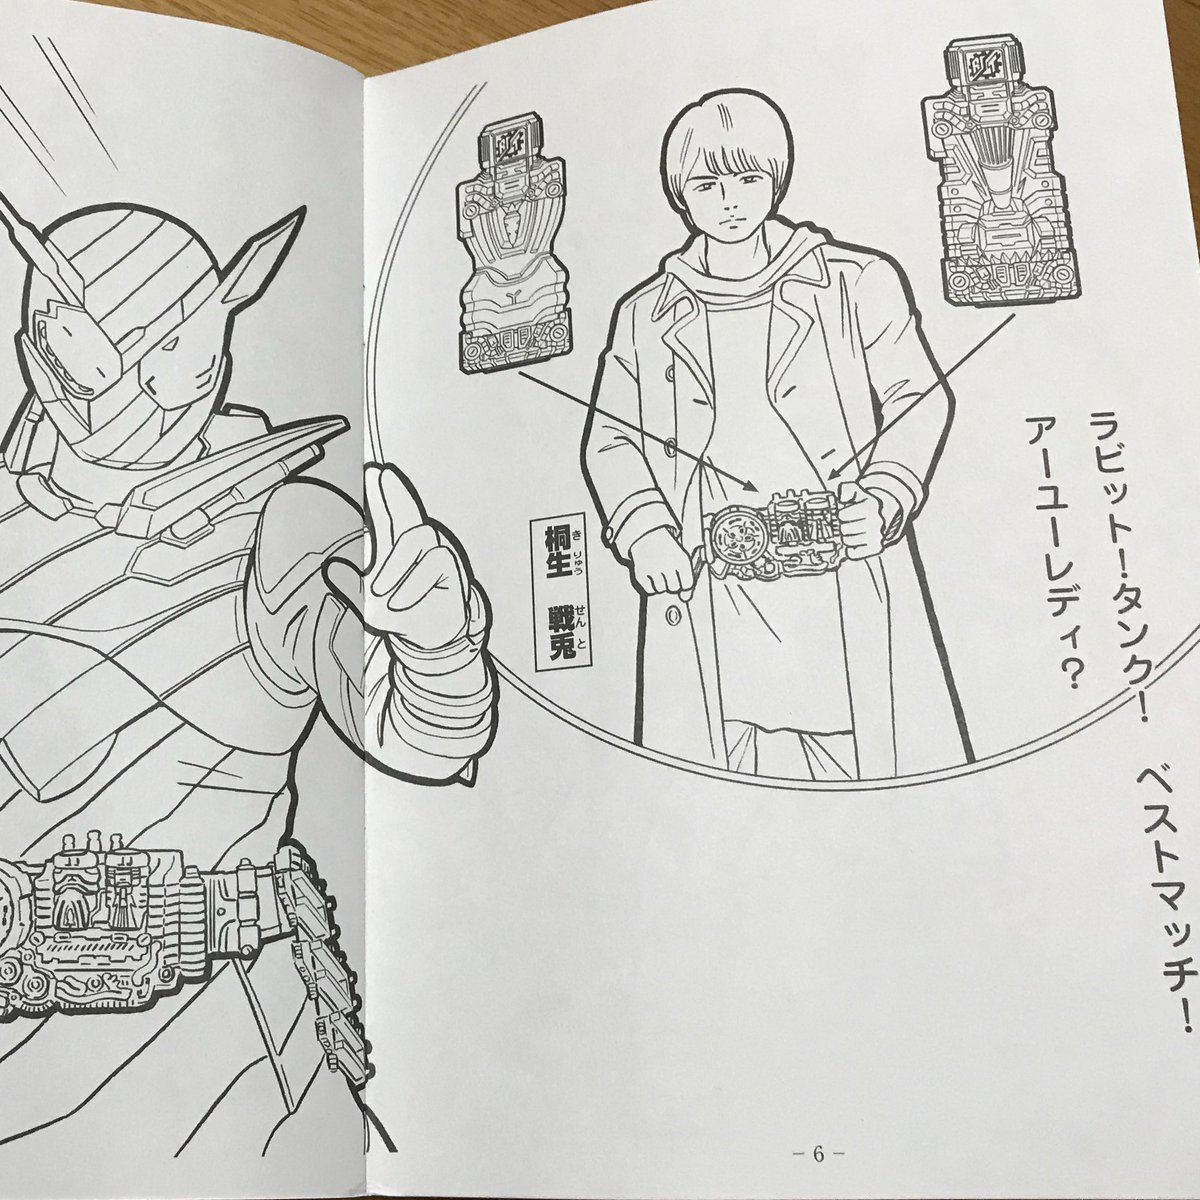 ラビット!タンク! ベストマッチ!
アーユーレディ?
桐生 戦兎
きりゅう せんと
- 6 -